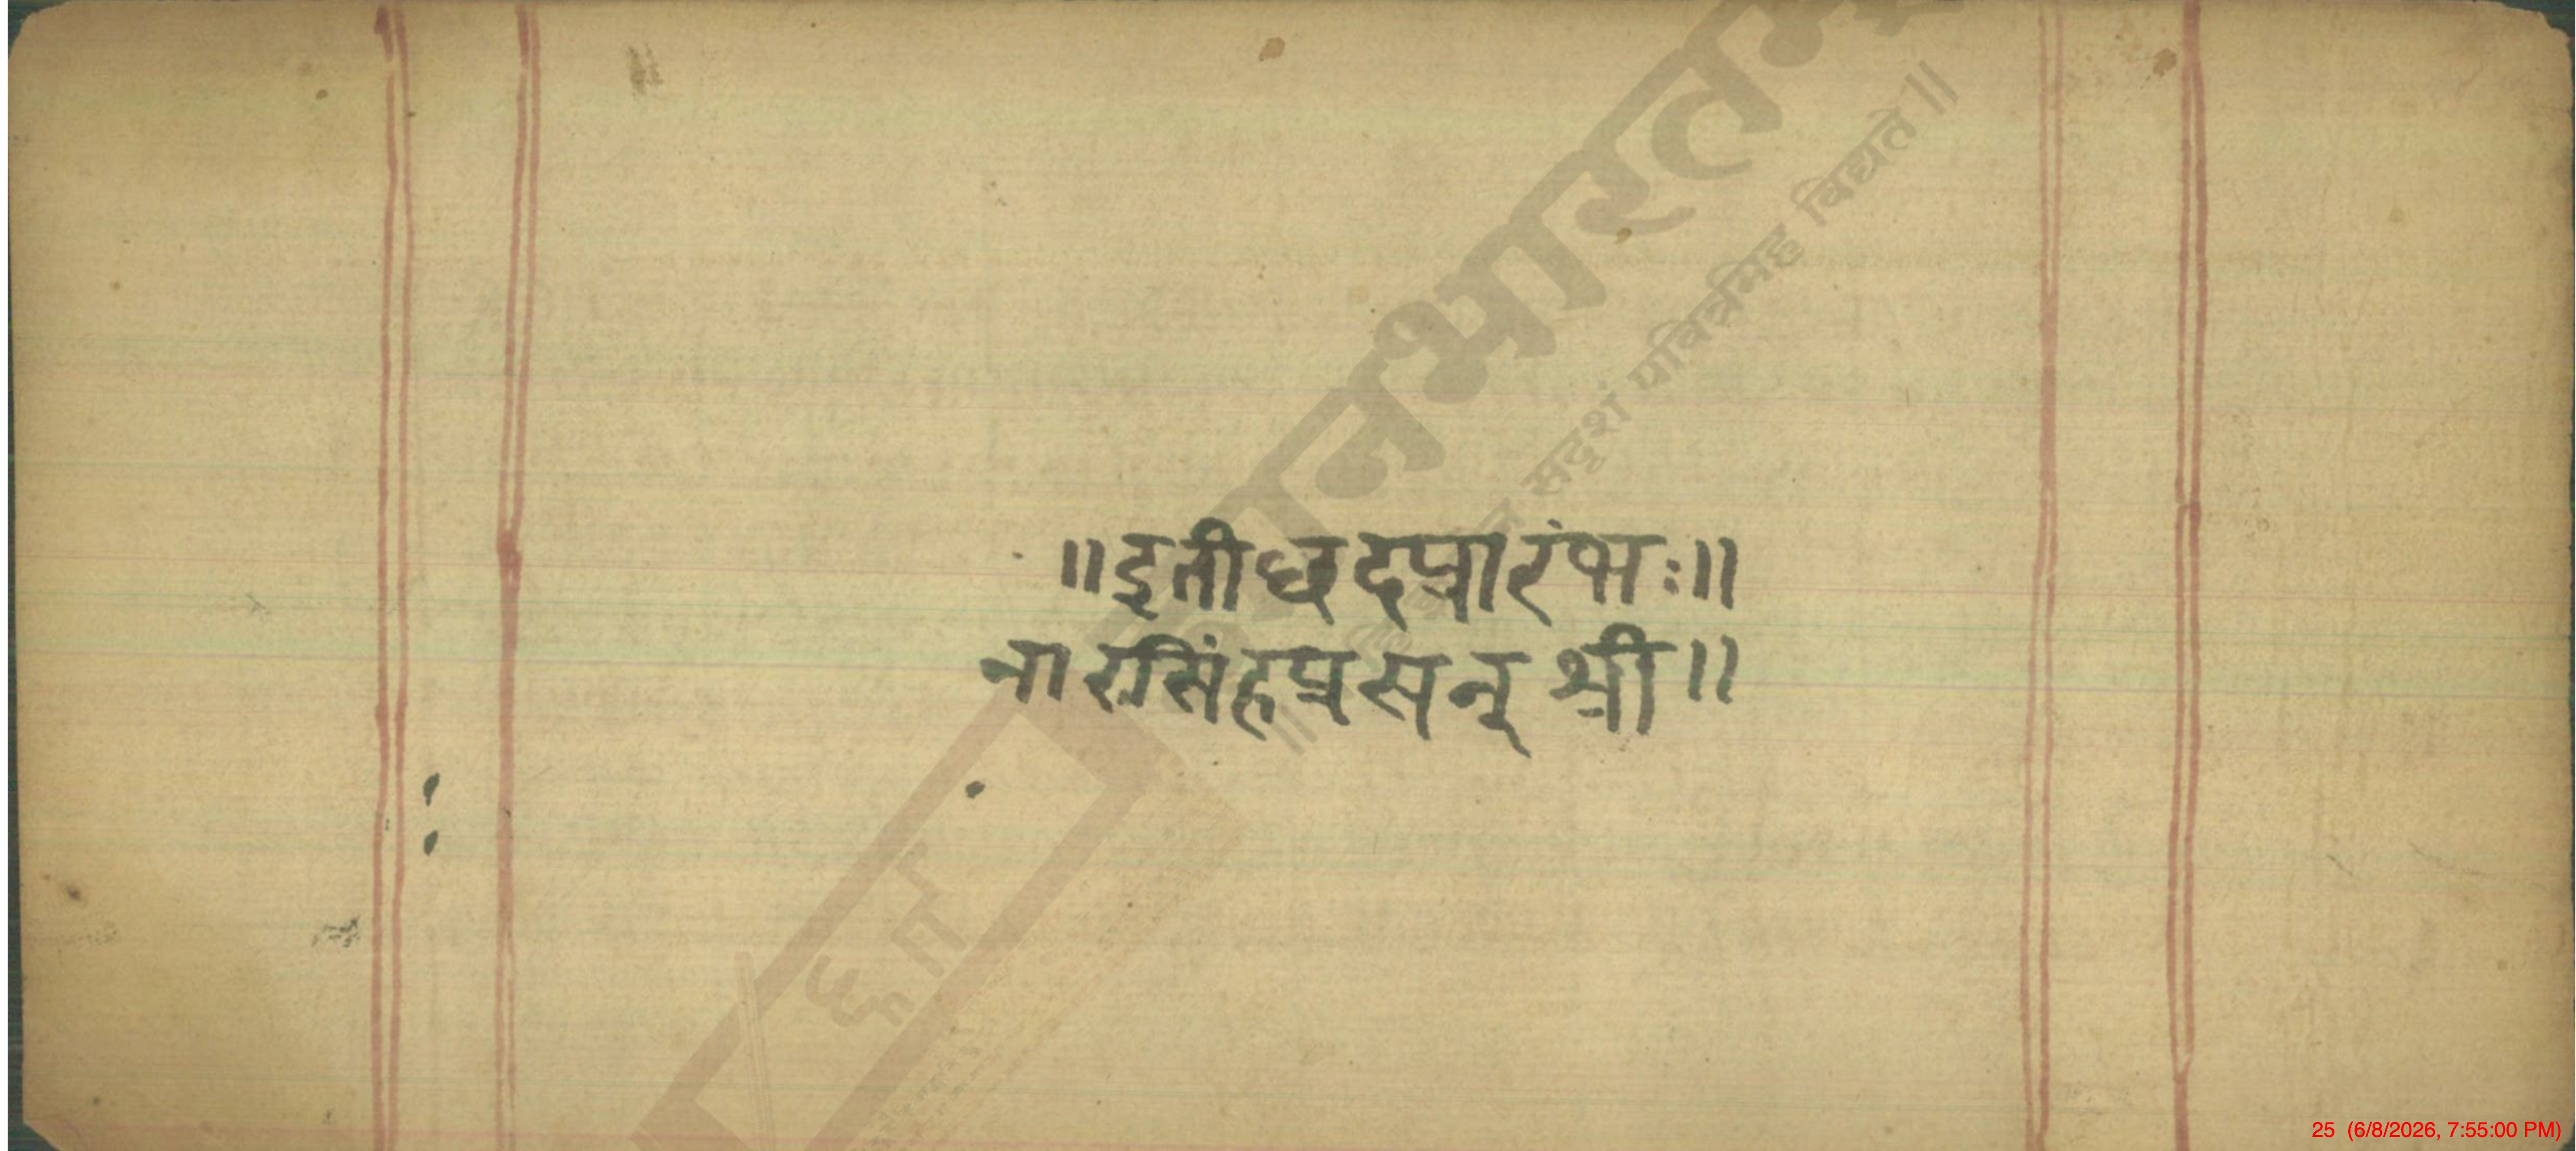 ॥इतीछदप्रारंभः॥
नारसिंहप्रसन् श्री॥
ज्ञानभारतम्
सदृशं पवित्रमिह विद्यते॥
25 (6/8/2026, 7:55:00 PM)